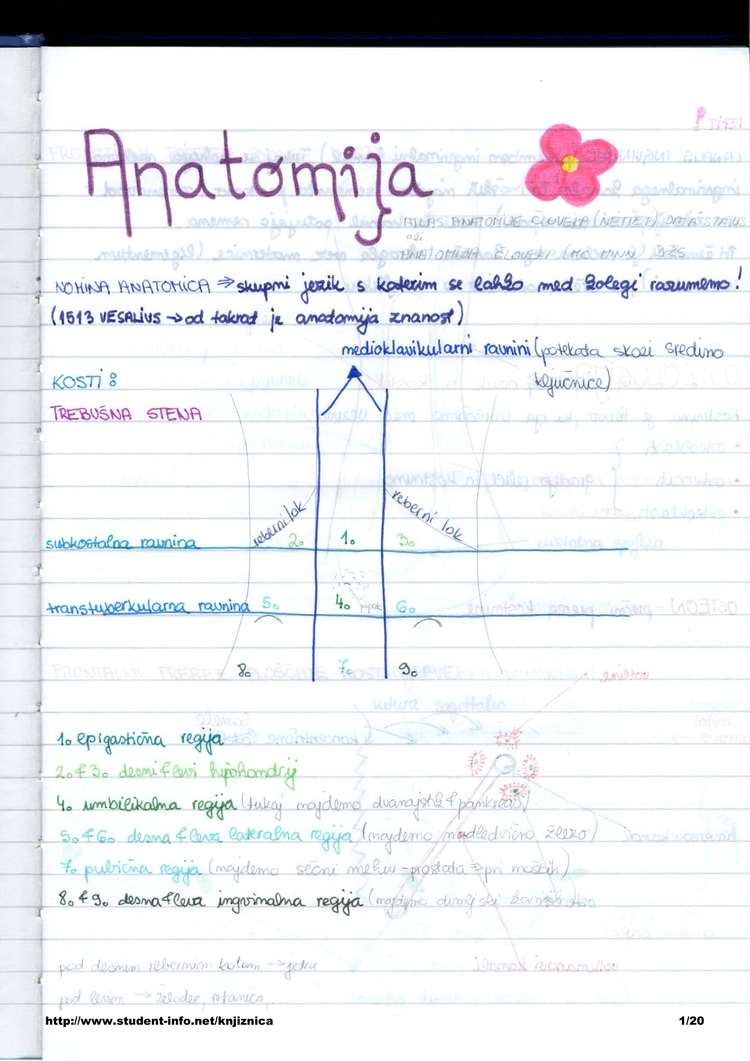 Anatomija
ATLAS ANATOMIJE ČLOVEKA (NETTET) DATA STATUS
ali
ANATOMIJA ČLOVEKA (MC MINN) DZS
NOMINA ANATOMICA ⇒ skupni jezik s katerim se lahko med kolegi razumemo!
(1513 VESALIUS → od takrat je anatomija znanost)
medioklavikularni ravnini (potekata skozi sredino
ključnice)
KOSTI:
TREBUŠNA STENA
reberni lok
reberni lok
2. 1. 3.
subkostalna ravnina
transtuberkularna ravnina 5. 4. 6.
8. 7. 9.
1. epigastična regija
2. & 3. desni & levi hipohondrij
4. umbilikalna regija (tukaj najdemo dvanajstnik & pankreas)
5. & 6. desna & leva lateralna regija (najdemo nadledvično žlezo)
7. pubična regija (najdemo sečni mehur - prostata pri moških)
8. & 9. desna & leva ingvinalna regija (najdemo
pod desnim rebernim lokom → jetra
pod levim → želodec, vranica,
http://www.student-info.net/knjiznica
1/20